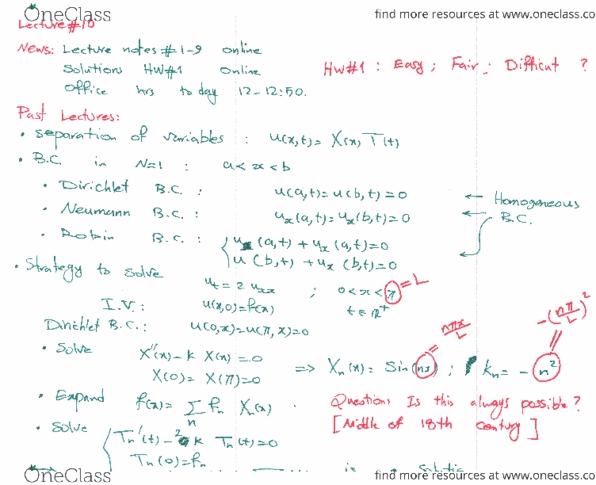 OneClass
find more resources at www.oneclass.co
Lecture #10
News: Lecture notes #1-9 online
Solutions HW#1 online
Office hrs today 12-12:50.
HW#1 : Easy ; Fair ; Difficult ?
Past Lectures:
• separation of variables : u(x,t) = X(x) T(t)
• B.C. in N=1 : a<x<b
• Dirichlet B.C. : u(a,t) = u(b,t) = 0
• Neumann B.C. : u_x(a,t) = u_x(b,t) = 0
← Homogeneous
← B.C.
• Robin B.C. : { u(a,t) + u_x(a,t) = 0
u(b,t) + u_x(b,t) = 0
• Strategy to solve
u_t = 2 u_xx ; 0<x<π = L
I.V.: u(x,0) = f(x) t ∈ R⁺
Dirichlet B.C.: u(0,x) = u(π,x) = 0
• Solve X''(x) - k X(x) = 0
X(0) = X(π) = 0
⇒ X_n(x) = Sin(nx) ; k_n = - n²
= nπx/L
-(nπ/L)²
• Expand f(x) = Σ_n f_n X_n(x)
Question: Is this always possible?
[Middle of 18th century]
• Solve { T_n'(t) - 2 k T_n(t) = 0
T_n(0) = f_n
is
OneClass
find more resources at www.oneclass.co